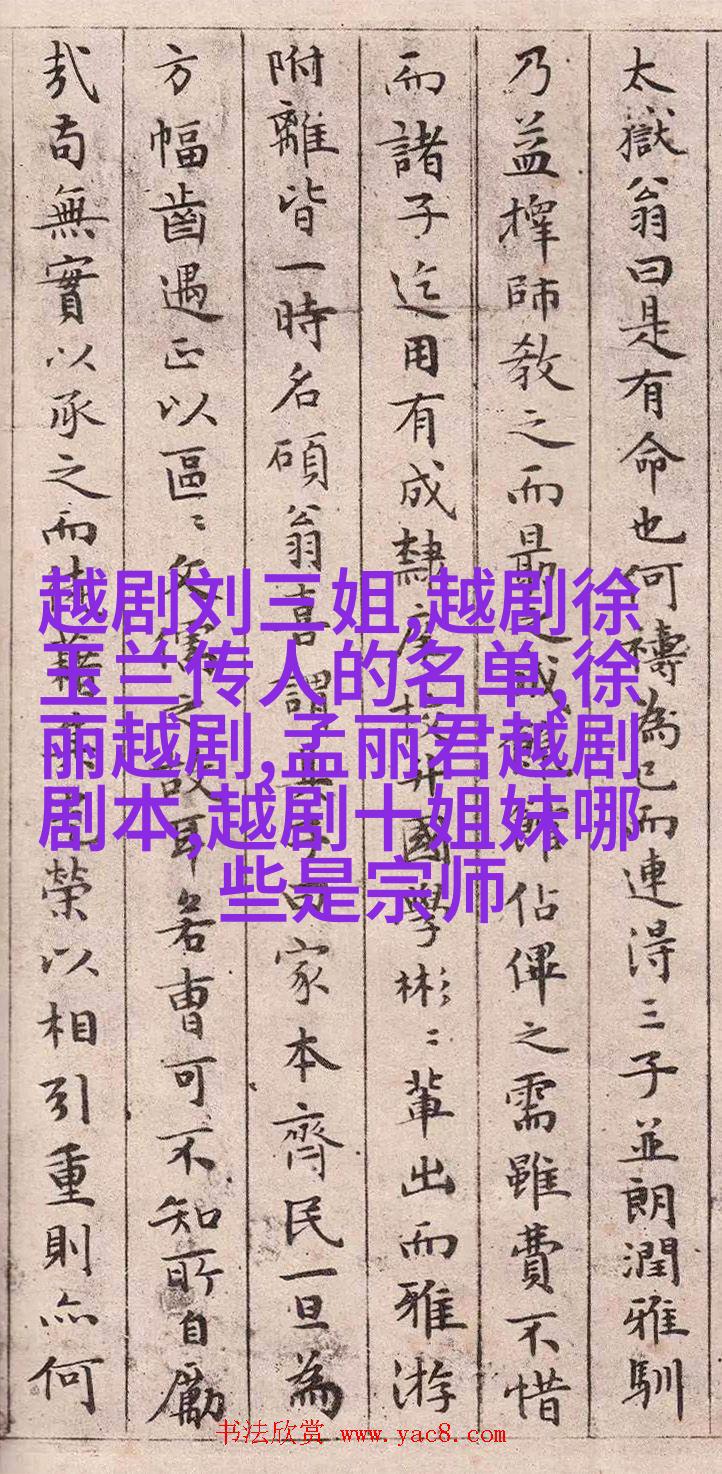 太獄翁曰是有命也何禱為已而連得三子並朗潤雅馴
乃益擇師教之而最之誠觀飾佔僤之需雖費不惜
而諸子迄用有成熱度故并國學彬〻輩出而雅游
附離皆一時名碩翁喜謂其子曰家本齊民一旦為
方幅齒遇正以區〻文儒之故耳若曹可不知所自勵
哉苟無實以承之而榮以相引重則亦何
越剧刘三姐,越剧徐
玉兰传人的名单,徐
丽越剧,孟丽君越剧
剧本,越剧十姐妹哪
些是宗师
书法欣赏 www.yac8.com